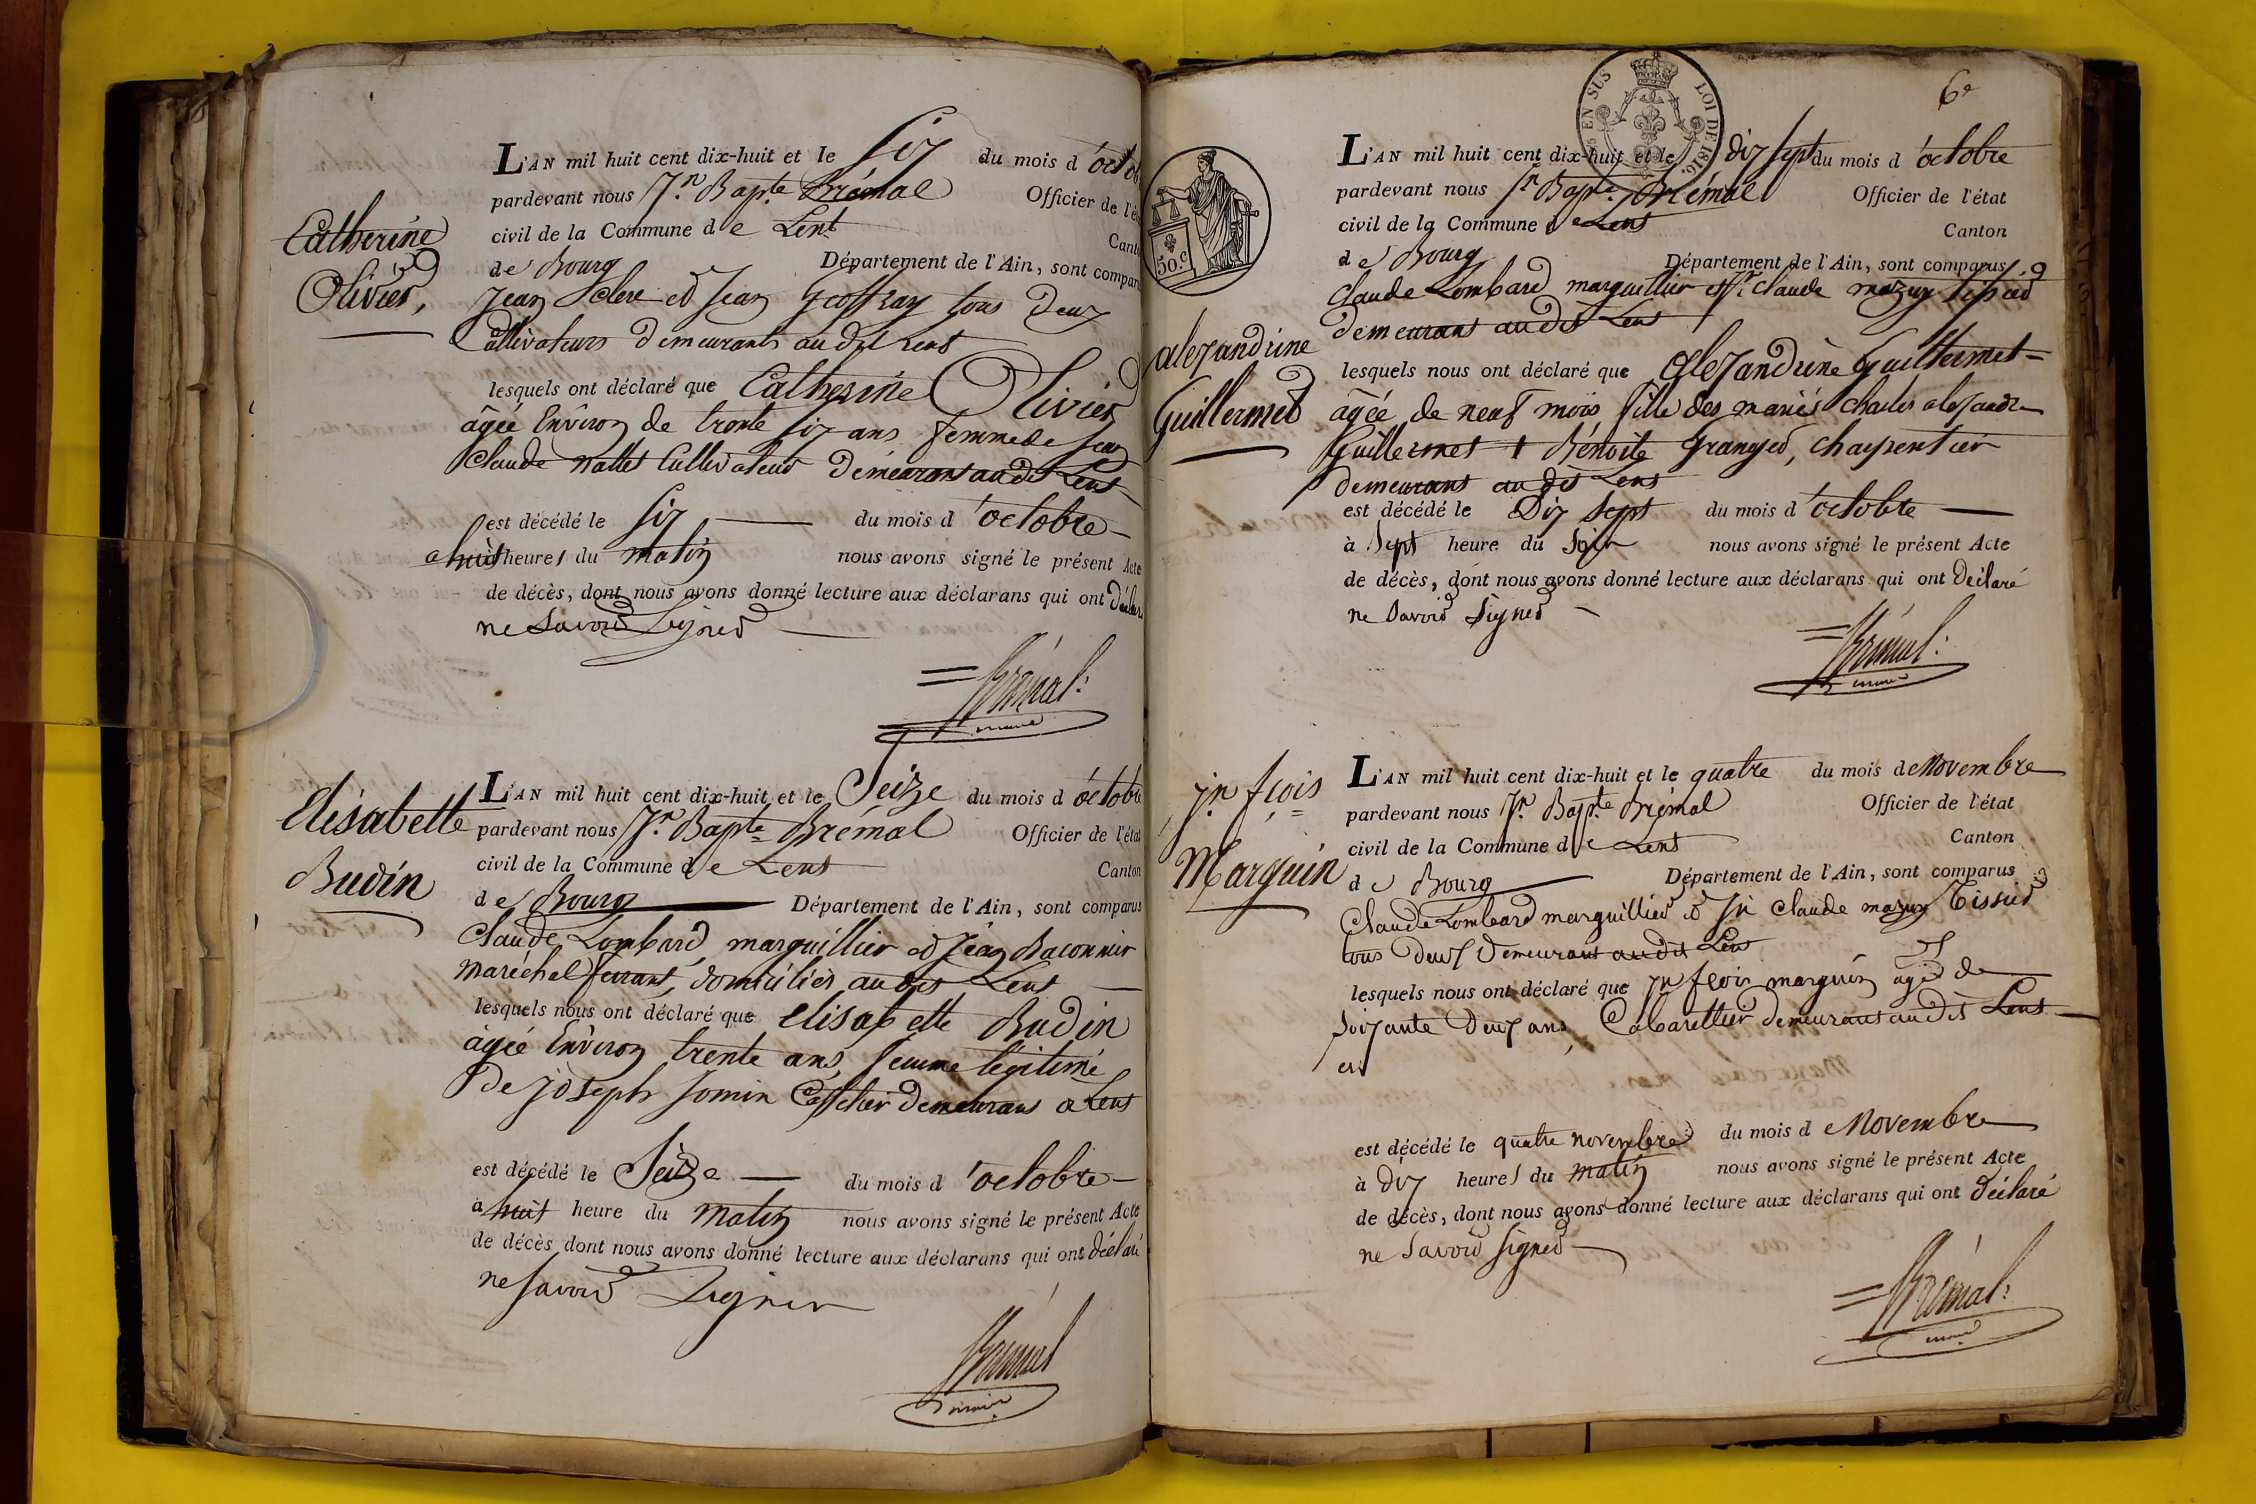 Catherine
Olivier,
L'AN mil huit cent dix-huit et le Six du mois d'octob
pardevant nous Jn. Bapte Brémal Officier de l'é
civil de la Commune de Lent Cant
de Bourg Département de l'Ain, sont compar
Jean Sclere et Jean Geoffray tous deux
Cultivateurs demeurants au dit Lent
lesquels ont déclaré que Catherine Olivier
âgée Environ de trente six ans femme de Jean
Claude Cultivateur demeurant au dit Lent
est décédé le Six du mois d'octobre
a huit heures du matin nous avons signé le présent Acte
de décès, dont nous avons donné lecture aux déclarans qui ont déclaré
ne Savoir Signer
Brémal
maire
Elisabette
Budin
L'AN mil huit cent dix-huit et le Seize du mois d'octobre
pardevant nous Jn. Bapte Brémal Officier de l'état
civil de la Commune de Lent Canton
de Bourg Département de l'Ain, sont comparus
Claude Lombard, marguillier et Jean Baconnier
maréchal ferrant, domiciliés au dit Lent
lesquels nous ont déclaré que elisabette Budin
âgée Environ trente ans, femme légitime
De joseph Jomin demeurans a Lent
est décédé le Seize du mois d'octobre
a huit heure du matin nous avons signé le présent Acte
de décès dont nous avons donné lecture aux déclarans qui ont déclaré
ne Savoir Signer
Brémal
maire
6e
EN SUS LOI DE 1816.
50.c
alexandrine
Guillermet
L'AN mil huit cent dix-huit et le dix sept du mois d'octobre
pardevant nous Jn Bapte. Brémal Officier de l'état
civil de la Commune de Lent Canton
de Bourg Département de l'Ain, sont comparus
Claude Lombard marguillier et Jn claude mazuy tissier
demeurant au dit Lent
lesquels nous ont déclaré que alexandrine Guillermet
âgée de neuf mois fille des mariés Charles alexandre
Guillermet & Bénoite Granger, charpentier
demeurant au dit Lent
est décédé le Dix Sept du mois d'octobre
à Sept heure du Soir nous avons signé le présent Acte
de décès, dont nous avons donné lecture aux déclarans qui ont déclaré
ne Savoir Signer
Brémal
maire
jn fçois
Marguin
L'AN mil huit cent dix-huit et le quatre du mois de Novembre
pardevant nous Jn. Bapte Brémal Officier de l'état
civil de la Commune de Lent Canton
de Bourg Département de l'Ain, sont comparus
Claude Lombard marguillier et Jn Claude mazuy Tissier
tous deux demeurant au dit Lent
lesquels nous ont déclaré que jn fçois marguin agé de
soixante deux ans, Cabarettier demeurant au dit Lent
est
est décédé le quatre novembre du mois de Novembre
à dix heures du matin nous avons signé le présent Acte
de décès, dont nous avons donné lecture aux déclarans qui ont déclaré
ne Savoir Signer
Brémal
maire